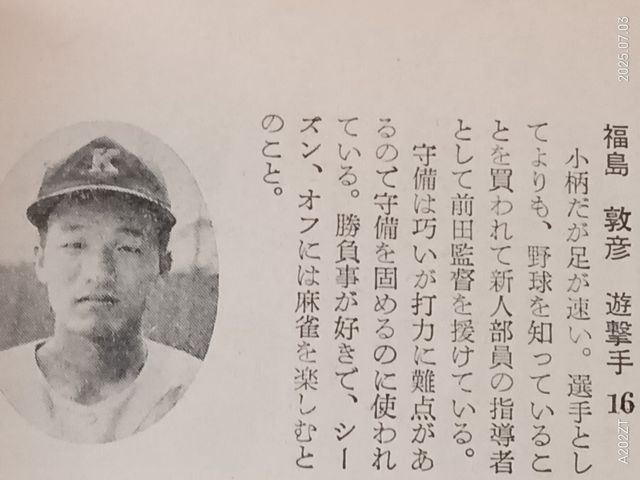 福島 敦彦 遊撃手 16
小柄だが足が速い。選手とし
てよりも、野球を知っているこ
とを買われて新人部員の指導者
として前田監督を援けている。
守備は巧いが打力に難点があ
るので守備を固めるのに使われ
ている。勝負事が好きで、シー
ズン、オフには麻雀を楽しむと
のこと。
K
2025.07.03
A202ZT